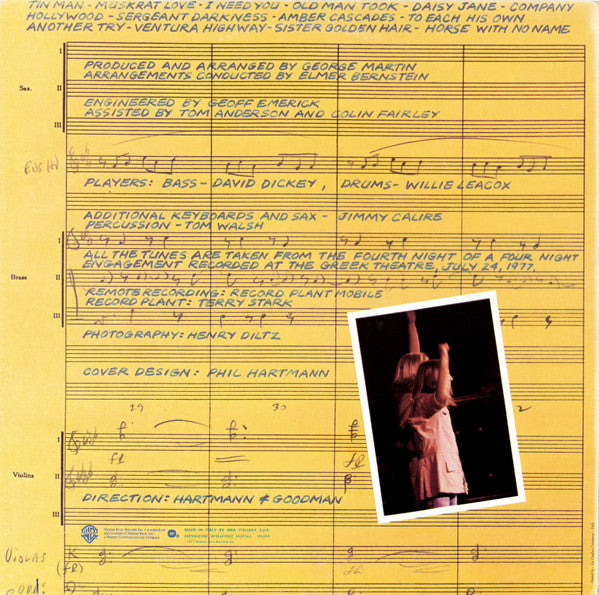 TIN MAN - MUSKRAT LOVE - I NEED YOU - OLD MAN TOOK - DAISY JANE - COMPANY
HOLLYWOOD - SERGEANT DARKNESS - AMBER CASCADES - TO EACH HIS OWN
ANOTHER TRY - VENTURA HIGHWAY - SISTER GOLDEN HAIR - HORSE WITH NO NAME
PRODUCED AND ARRANGED BY GEORGE MARTIN
ARRANGEMENTS CONDUCTED BY ELMER BERNSTEIN
Sax.
I
II
III
ENGINEERED BY GEOFF EMERICK
ASSISTED BY TOM ANDERSON AND COLIN FAIRLEY
ENG HN
PLAYERS: BASS - DAVID DICKEY, DRUMS - WILLIE LEACOX
ADDITIONAL KEYBOARDS AND SAX - JIMMY CALIRE
PERCUSSION - TOM WALSH
ALL THE TUNES ARE TAKEN FROM THE FOURTH NIGHT OF A FOUR NIGHT
ENGAGEMENT RECORDED AT THE GREEK THEATRE, JULY 24, 1977.
Brass
I
II
III
REMOTE RECORDING: RECORD PLANT MOBILE
RECORD PLANT: TERRY STARK
PHOTOGRAPHY: HENRY DILTZ
COVER DESIGN: PHIL HARTMANN
29 30 2
Violins
I
II
III
DIRECTION: HARTMANN & GOODMAN
MADE IN ITALY BY WEA ITALIANA S.p.A.
VIOLAS
(fl)